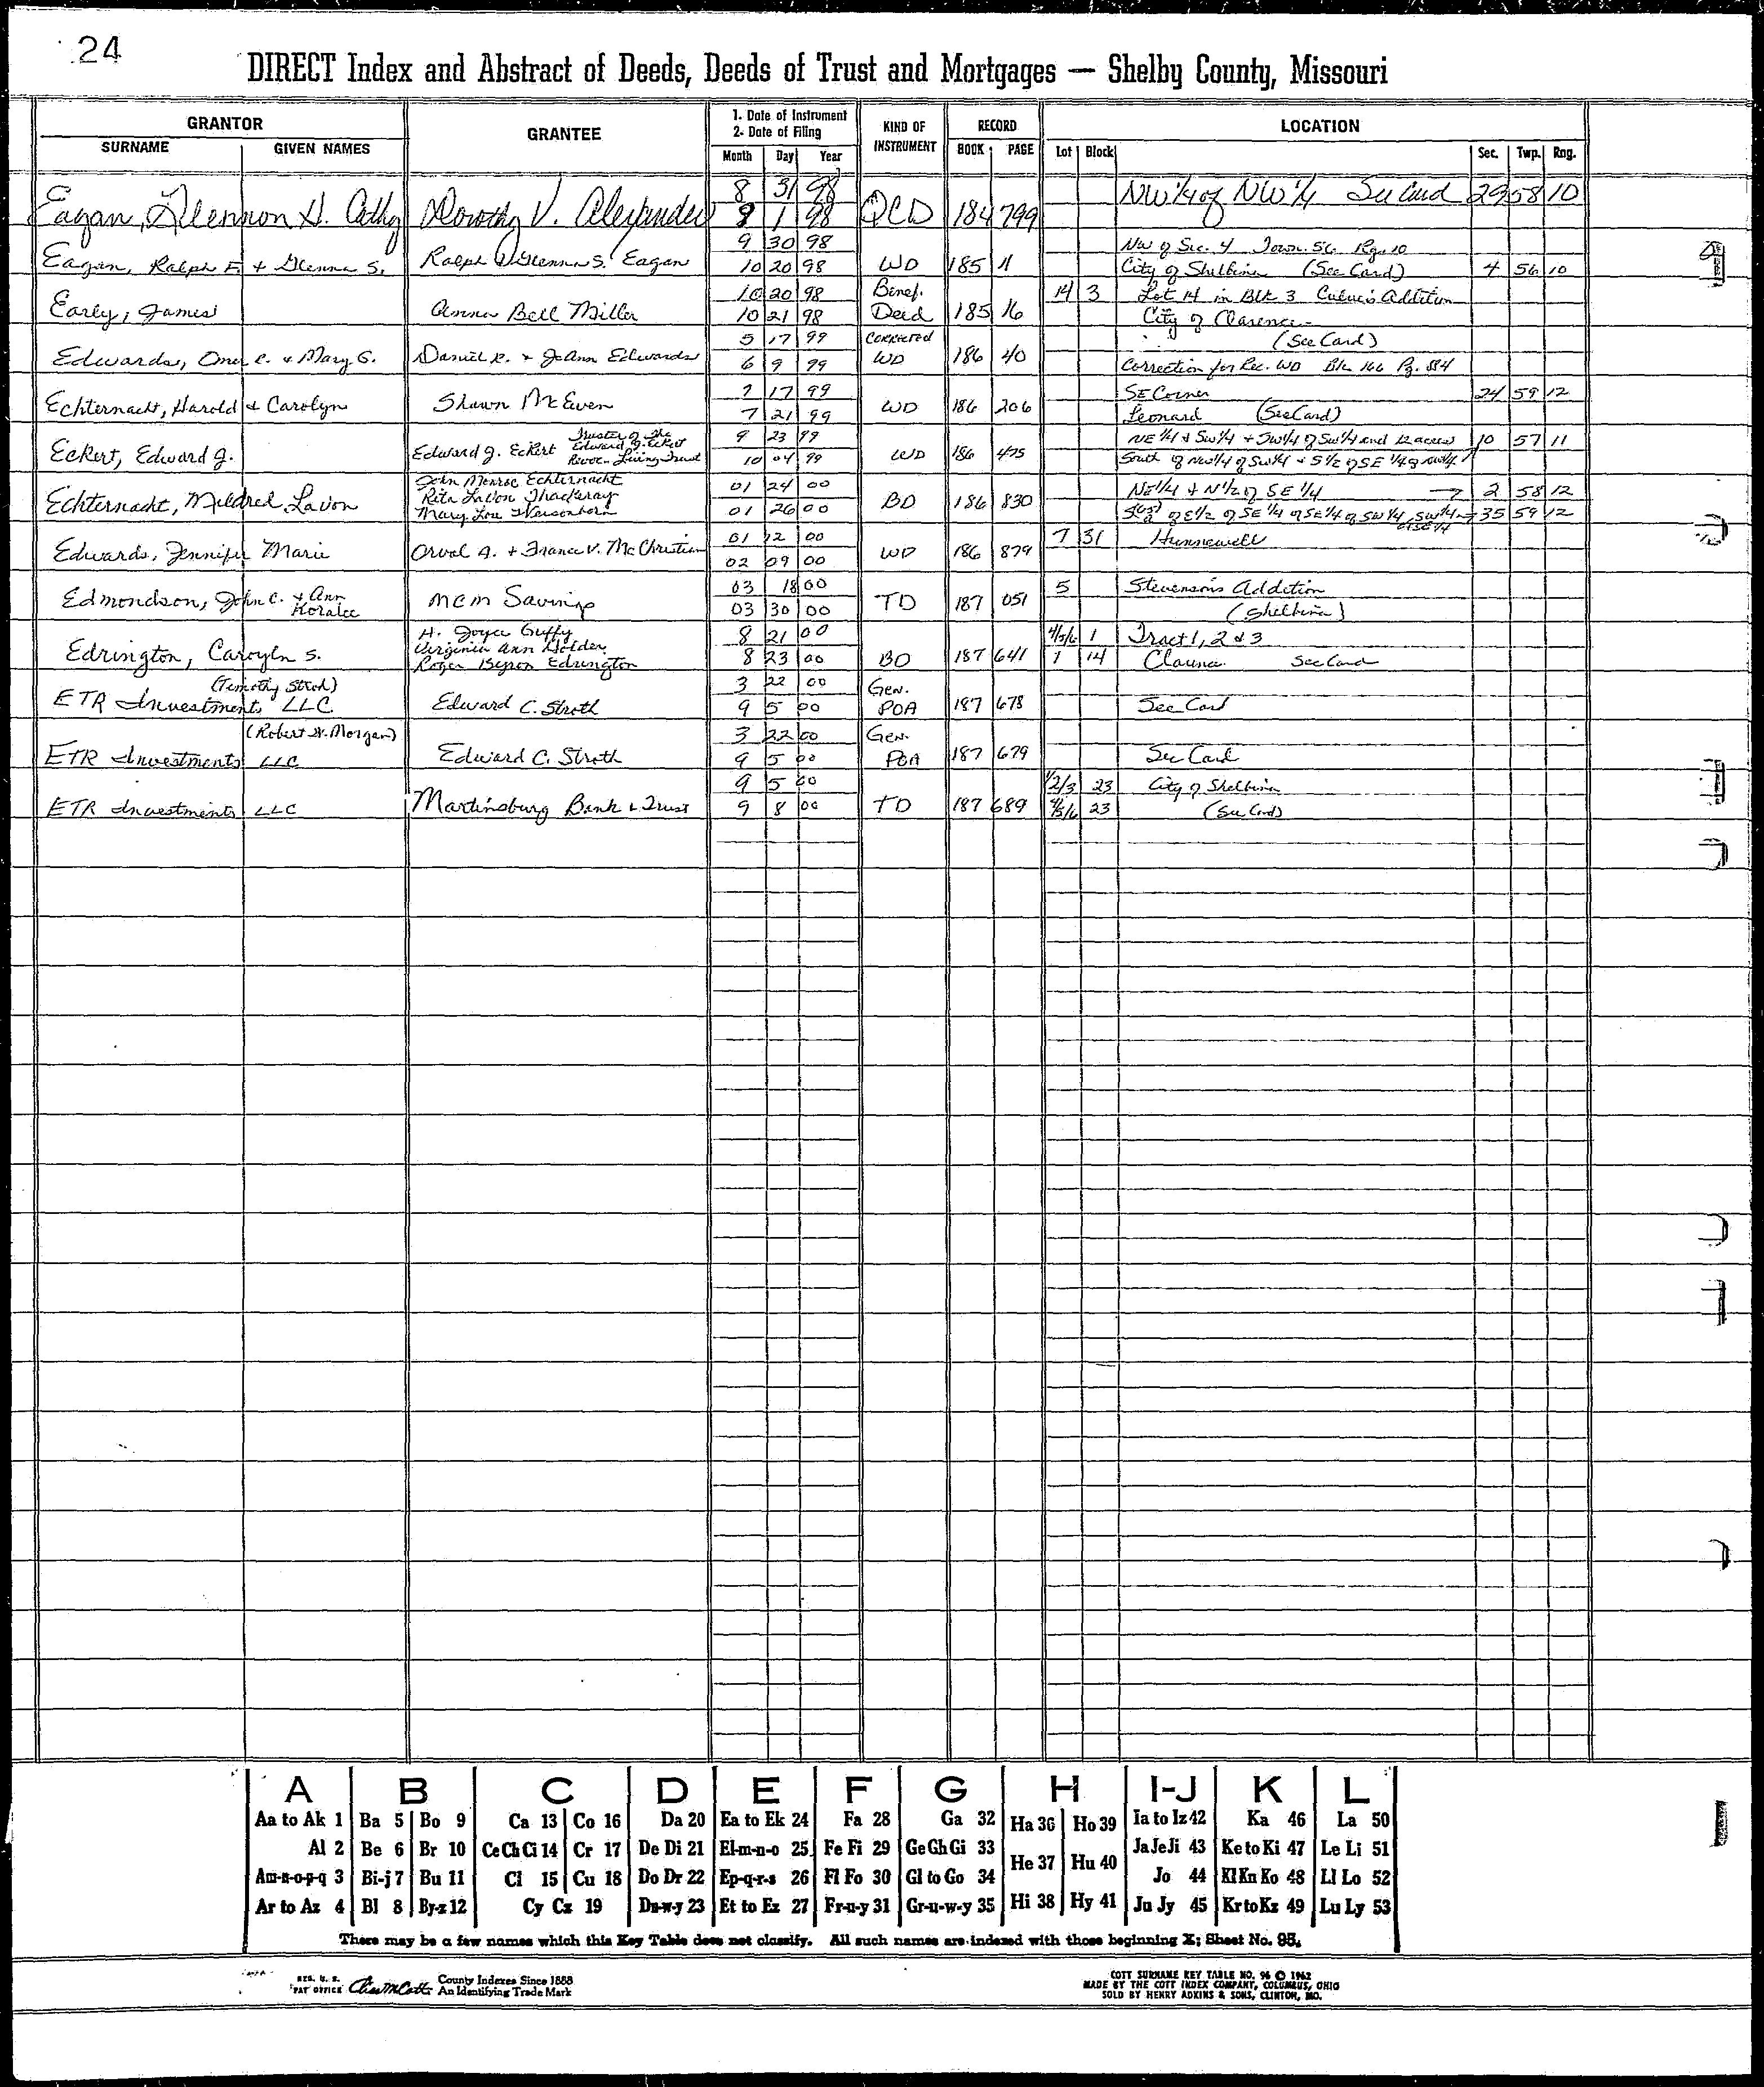 24
DIRECT Index and Abstract of Deeds, Deeds of Trust and Mortgages — Shelby County, Missouri
GRANTOR GRANTEE 1. Date of Instrument 2. Date of Filing KIND OF INSTRUMENT RECORD LOCATION
SURNAME GIVEN NAMES Month Day Year BOOK PAGE Lot Block Sec. Twp. Rng.
8 31 98 NW 1/4 of NW 1/4 See Card 29 58 10
Eagan, Glennon H. Cathy Dorothy V. Alexander 9 1 98 QCD 184 799
9 30 98 NW of Sec. 4 Town. 56 Rg. 10
Eagan, Ralph F. + Glenna S. Ralph Glenna S. Eagan 10 20 98 WD 185 11 City of Shelbina (See Card) 4 56 10
10 20 98 Benef. 14 3 Lot 14 in Blk 3 Addition
Early, James Anna Bell Miller 10 21 98 Deed 185 16 City of Clarence
5 17 99 Corrected (See Card)
Edwards, Omer C. + Mary G. Daniel R. + JoAnn Edwards 6 9 99 WD 186 40 Correction for Rec. WD Bk 166 Pg. 884
7 17 99 SE Corner 24 59 12
Echternacht, Harold + Carolyn Shawn McEwen 7 21 99 WD 186 206 Leonard (See Card)
Trustee of the Edward J. Eckert 9 23 99 NE 1/4 + SW 1/4 + SW 1/4 of SW 1/4 and 12 acres 10 57 11
Eckert, Edward J. Edward J. Eckert Revoc. Living Trust 10 04 99 WD 186 475 South of NW 1/4 of SW 1/4 + S 1/2 of SE 1/4 of NW 1/4
John Monroe Echternacht 01 24 00 NE 1/4 + N 1/2 of SE 1/4 → 2 58 12
Echternacht, Mildred Lavon Rita LaVon Thackeray
Mary Lou 01 26 00 BD 186 830 of E 1/2 of SE 1/4 of SE 1/4 of SW 1/4, SW 1/4 of SE 1/4 → 35 59 12
01 12 00 7 31 Hunnewell
Edwards, Jennifer Marie Orval A. + France V. McChristian 02 09 00 WD 186 879
03 18 00 5 Stevenson's Addition
Edmondson, John C. + Ann Horalee MCM Savings 03 30 00 TD 187 051 (Shelbina)
H. Joyce Guffy 8 21 00 4/5/6 1 Tract 1, 2 + 3
Virginia Ann Holder
Edrington, Caroyln S. Roger Byron Edrington 8 23 00 BD 187 641 1 14 Clarence See Card
(Timothy Stroh) 3 22 00 Gen.
ETR Investments LLC Edward C. Stroth 9 5 00 POA 187 678 See Card
(Robert W. Morgan) 3 22 00 Gen.
ETR Investments LLC Edward C. Stroth 9 5 00 POA 187 679 See Card
9 5 00 1/2/3 23 City of Shelbina
ETR Investments LLC Martinsburg Bank + Trust 9 8 00 TD 187 689 4/5/6 23 (See Card)
A B C D E F G H I-J K L
Aa to Ak 1 Ba 5 Bo 9 Ca 13 Co 16 Da 20 Ea to Ek 24 Fa 28 Ga 32 Ha 36 Ho 39 Ia to Iz 42 Ka 46 La 50
Al 2 Be 6 Br 10 Ce Ch Ci 14 Cr 17 De Di 21 El-m-n-o 25 Fe Fi 29 Ge Gh Gi 33 He 37 Hu 40 Ja Je Ji 43 Ke to Ki 47 Le Li 51
Am-n-o-p-q 3 Bi-j 7 Bu 11 Cl 15 Cu 18 Do Dr 22 Ep-q-r-s 26 Fl Fo 30 Gl to Go 34 Jo 44 Kl Kn Ko 48 Ll Lo 52
Ar to Az 4 Bl 8 By-z 12 Cy Cz 19 Du-w-y 23 Et to Ez 27 Fr-u-y 31 Gr-u-w-y 35 Hi 38 Hy 41 Ju Jy 45 Kr to Kz 49 Lu Ly 53
There may be a few names which this Key Table does not classify. All such names are indexed with those beginning X; Sheet No. 95.
REG. U. S. PAT OFFICE County Indexes Since 1888
An Identifying Trade Mark
COTT SURNAME KEY TABLE NO. 96 © 1962
MADE BY THE COTT INDEX COMPANY, COLUMBUS, OHIO
SOLD BY HENRY ADKINS & SONS, CLINTON, MO.